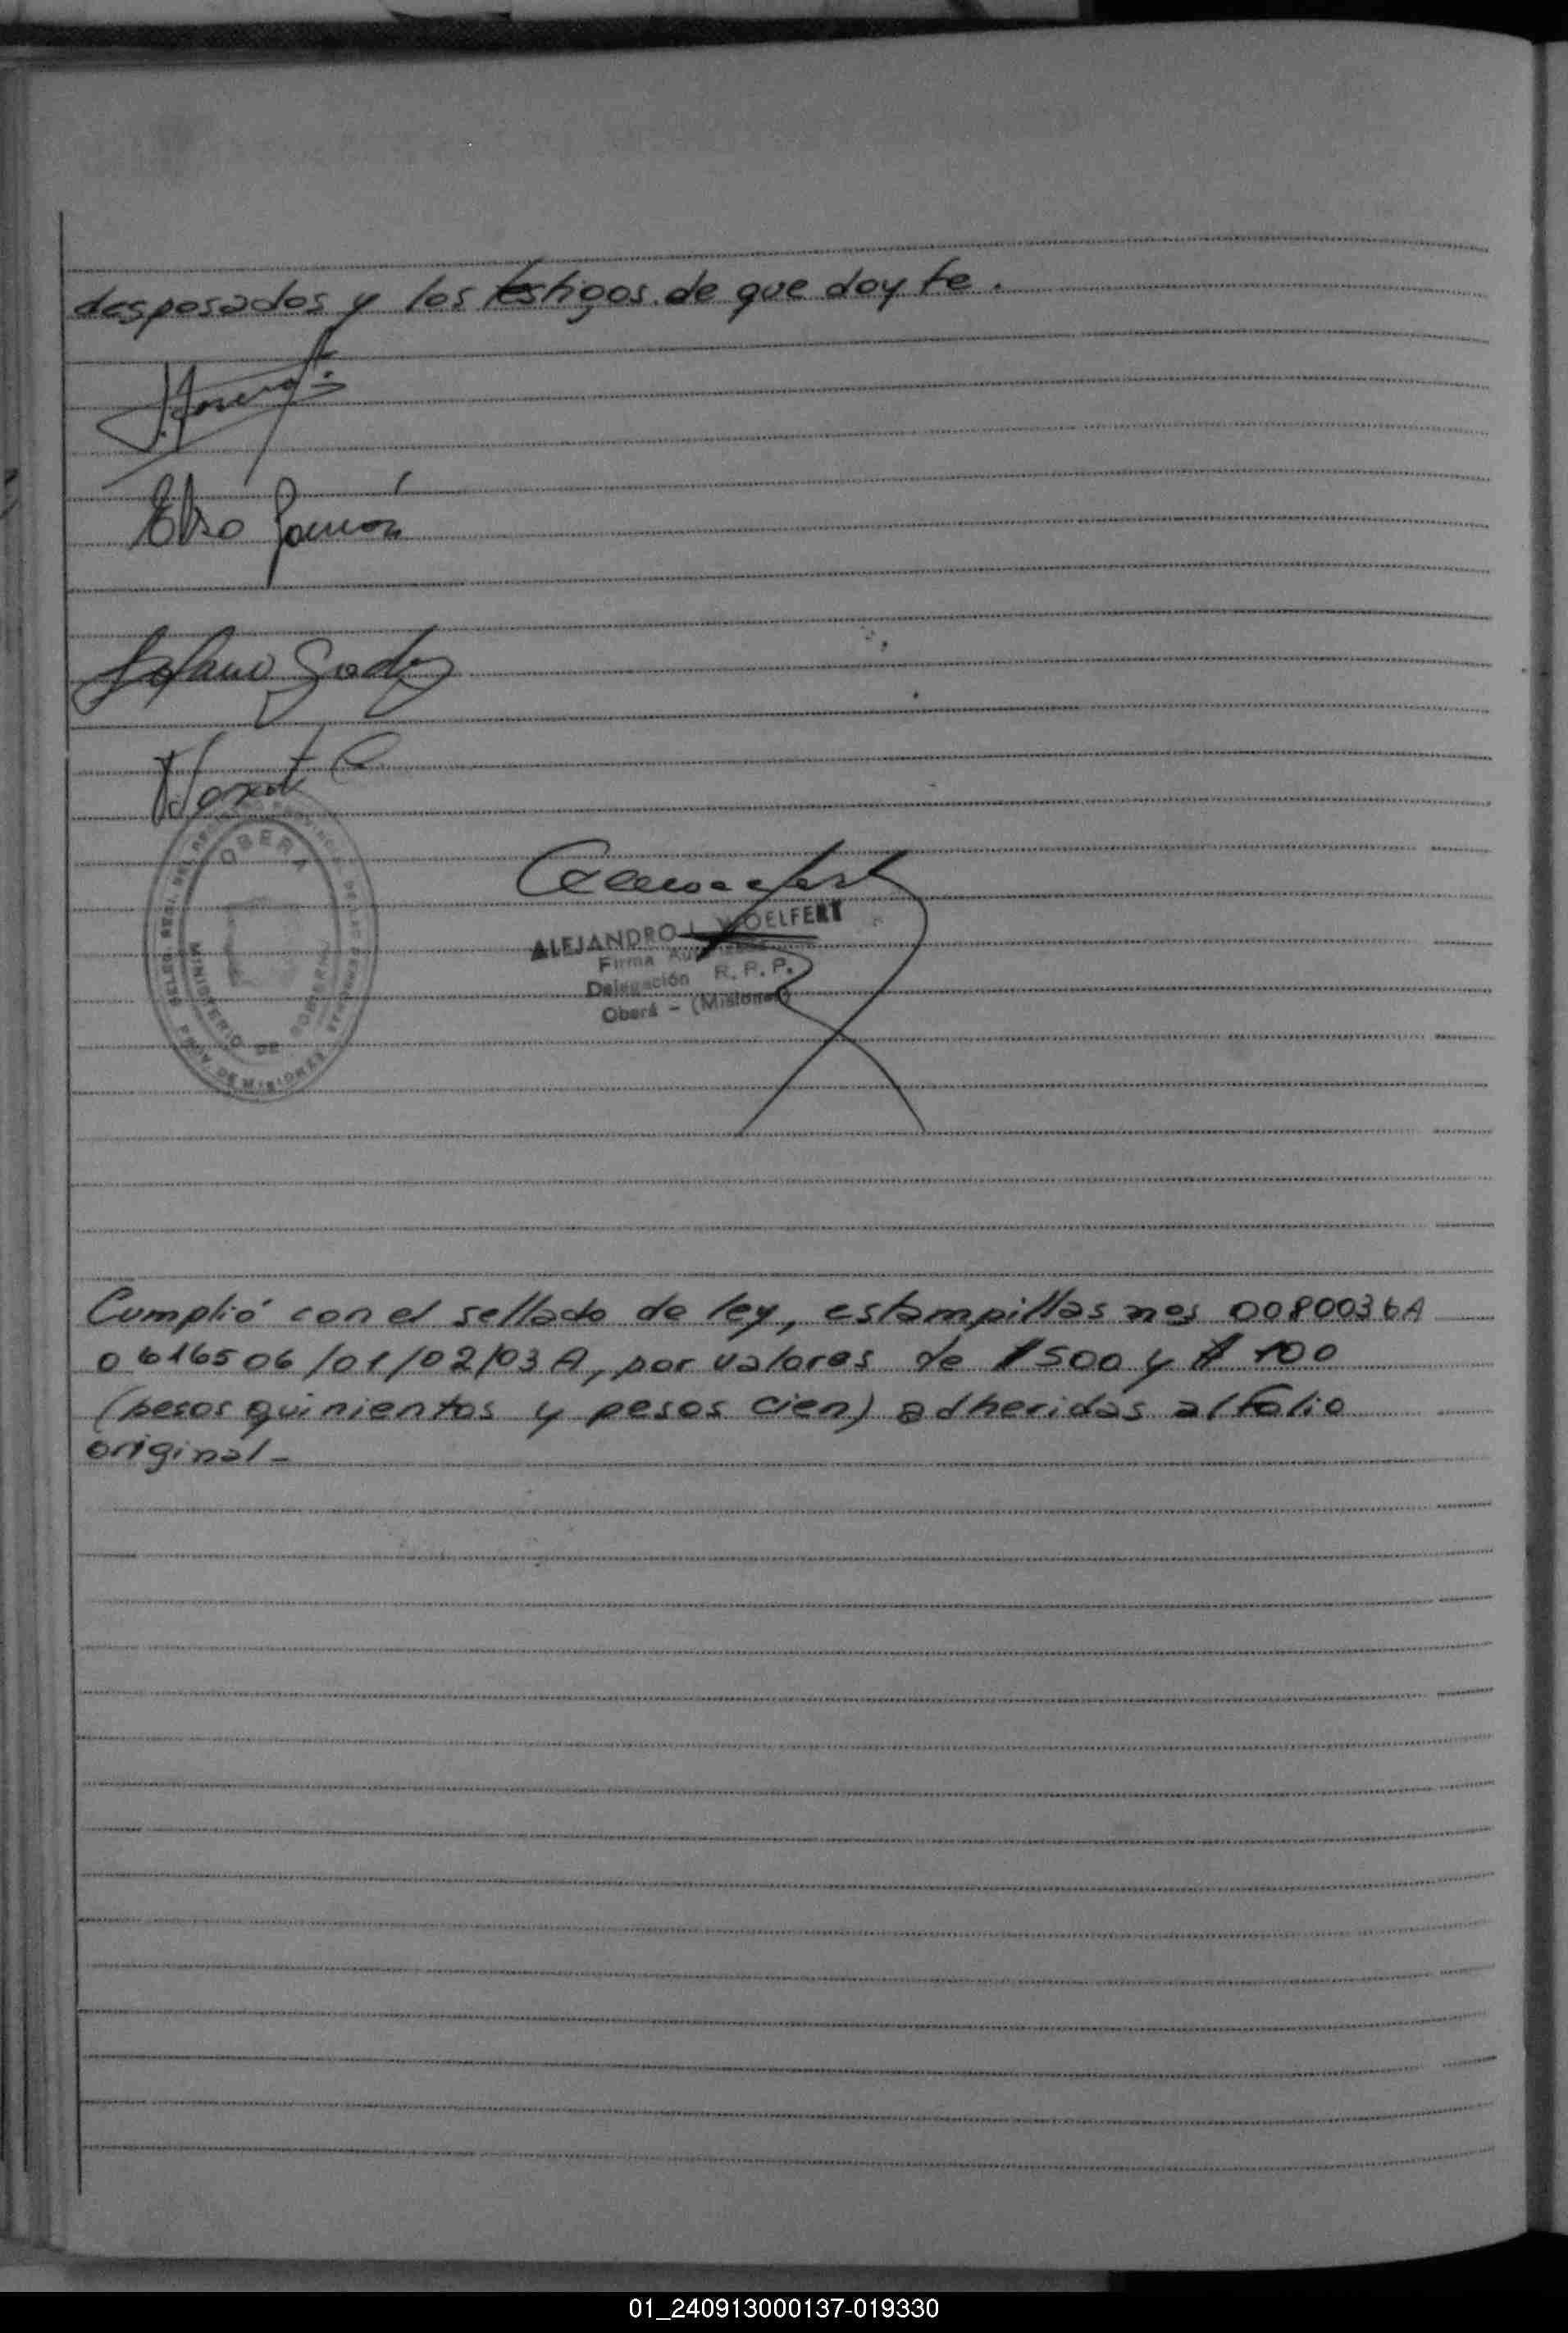 desposados y los testigos de que doy fe.
Elsa Ramón
OBERA
MINISTERIO DE GOBIERNO
PROV. DE MISIONES
ALEJANDRO L. WOELFERT
Firma
Delegación R. P. P.
Oberá - (Misiones)
Cumplió con el sellado de ley, estampillas nos 0080036A
0616506/01/02/03 A, por valores de $ 500 y $ 100
(pesos quinientos y pesos cien) adheridas al folio
original-
01_240913000137-019330